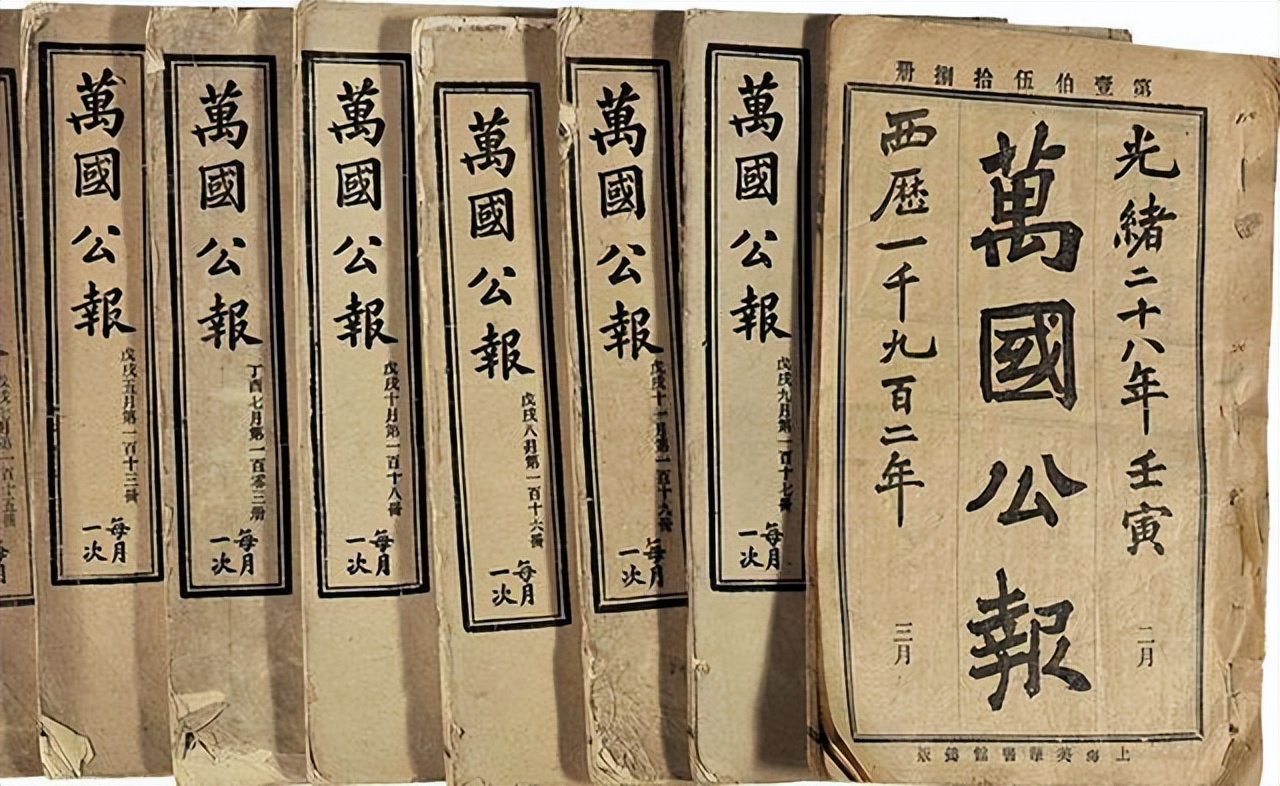 第一百十五冊
萬國公報
戊戌五月第一百十三冊
每月
一次
萬國公報
丁酉七月第一百零三册
每月
一次
萬國公報
戊戌十月第一百十八冊
每月
一次
萬國公報
戊戌八月第一百十六冊
每月
一次
萬國公報
戊戌十一月第一百十九冊
每月
一次
萬國公報
戊戌九月第一百十七冊
每月
一次
第壹伯伍拾捌册
光緒二十八年壬寅 二月
萬國公報
西歷一千九百二年 三月
上海美華書館